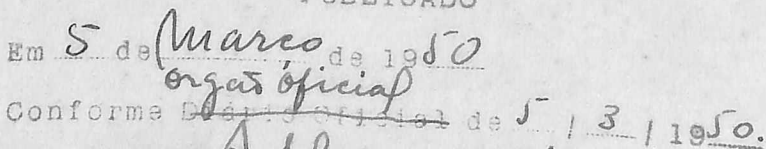 PUBLICADO
Em 5 de Março de 1950
orgaõ óficial
Conforme Diário Oficial de 5 / 3 / 1950.